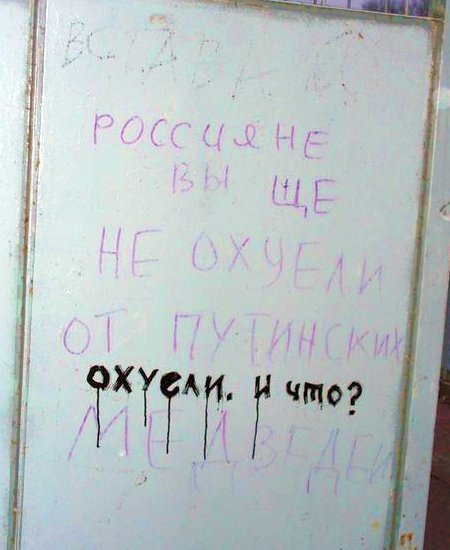 ВСТАВАЙ
РОССИЯНЕ
ВЫ ЩЕ
НЕ ОХУЕЛИ
ОТ ПУТИНСКИХ
ОХУЕЛИ. И что?
МЕДВЕДЕЙ